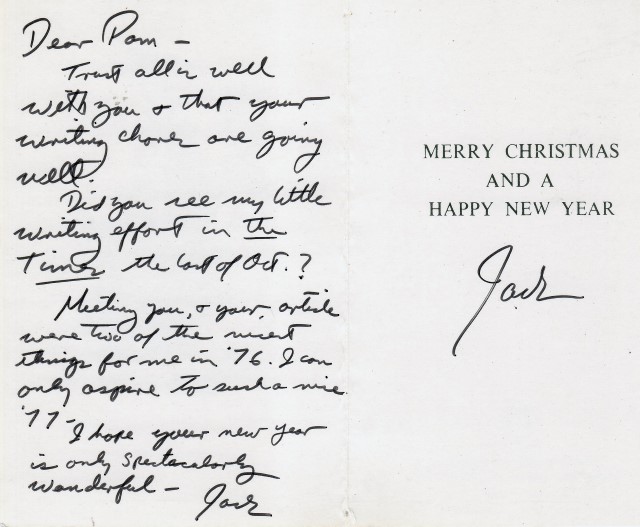 Dear Pam –
Trust all is well
with you & that your
writing chores are going
well.
Did you see my little
writing effort in the
Times the last of Oct.?
Meeting you, & your, article
were two of the nicest
things for me in '76. I can
only aspire to such a nice
'77–
I hope your new year
is only spectacularly
wonderful –
Jack
MERRY CHRISTMAS
AND A
HAPPY NEW YEAR
Jack